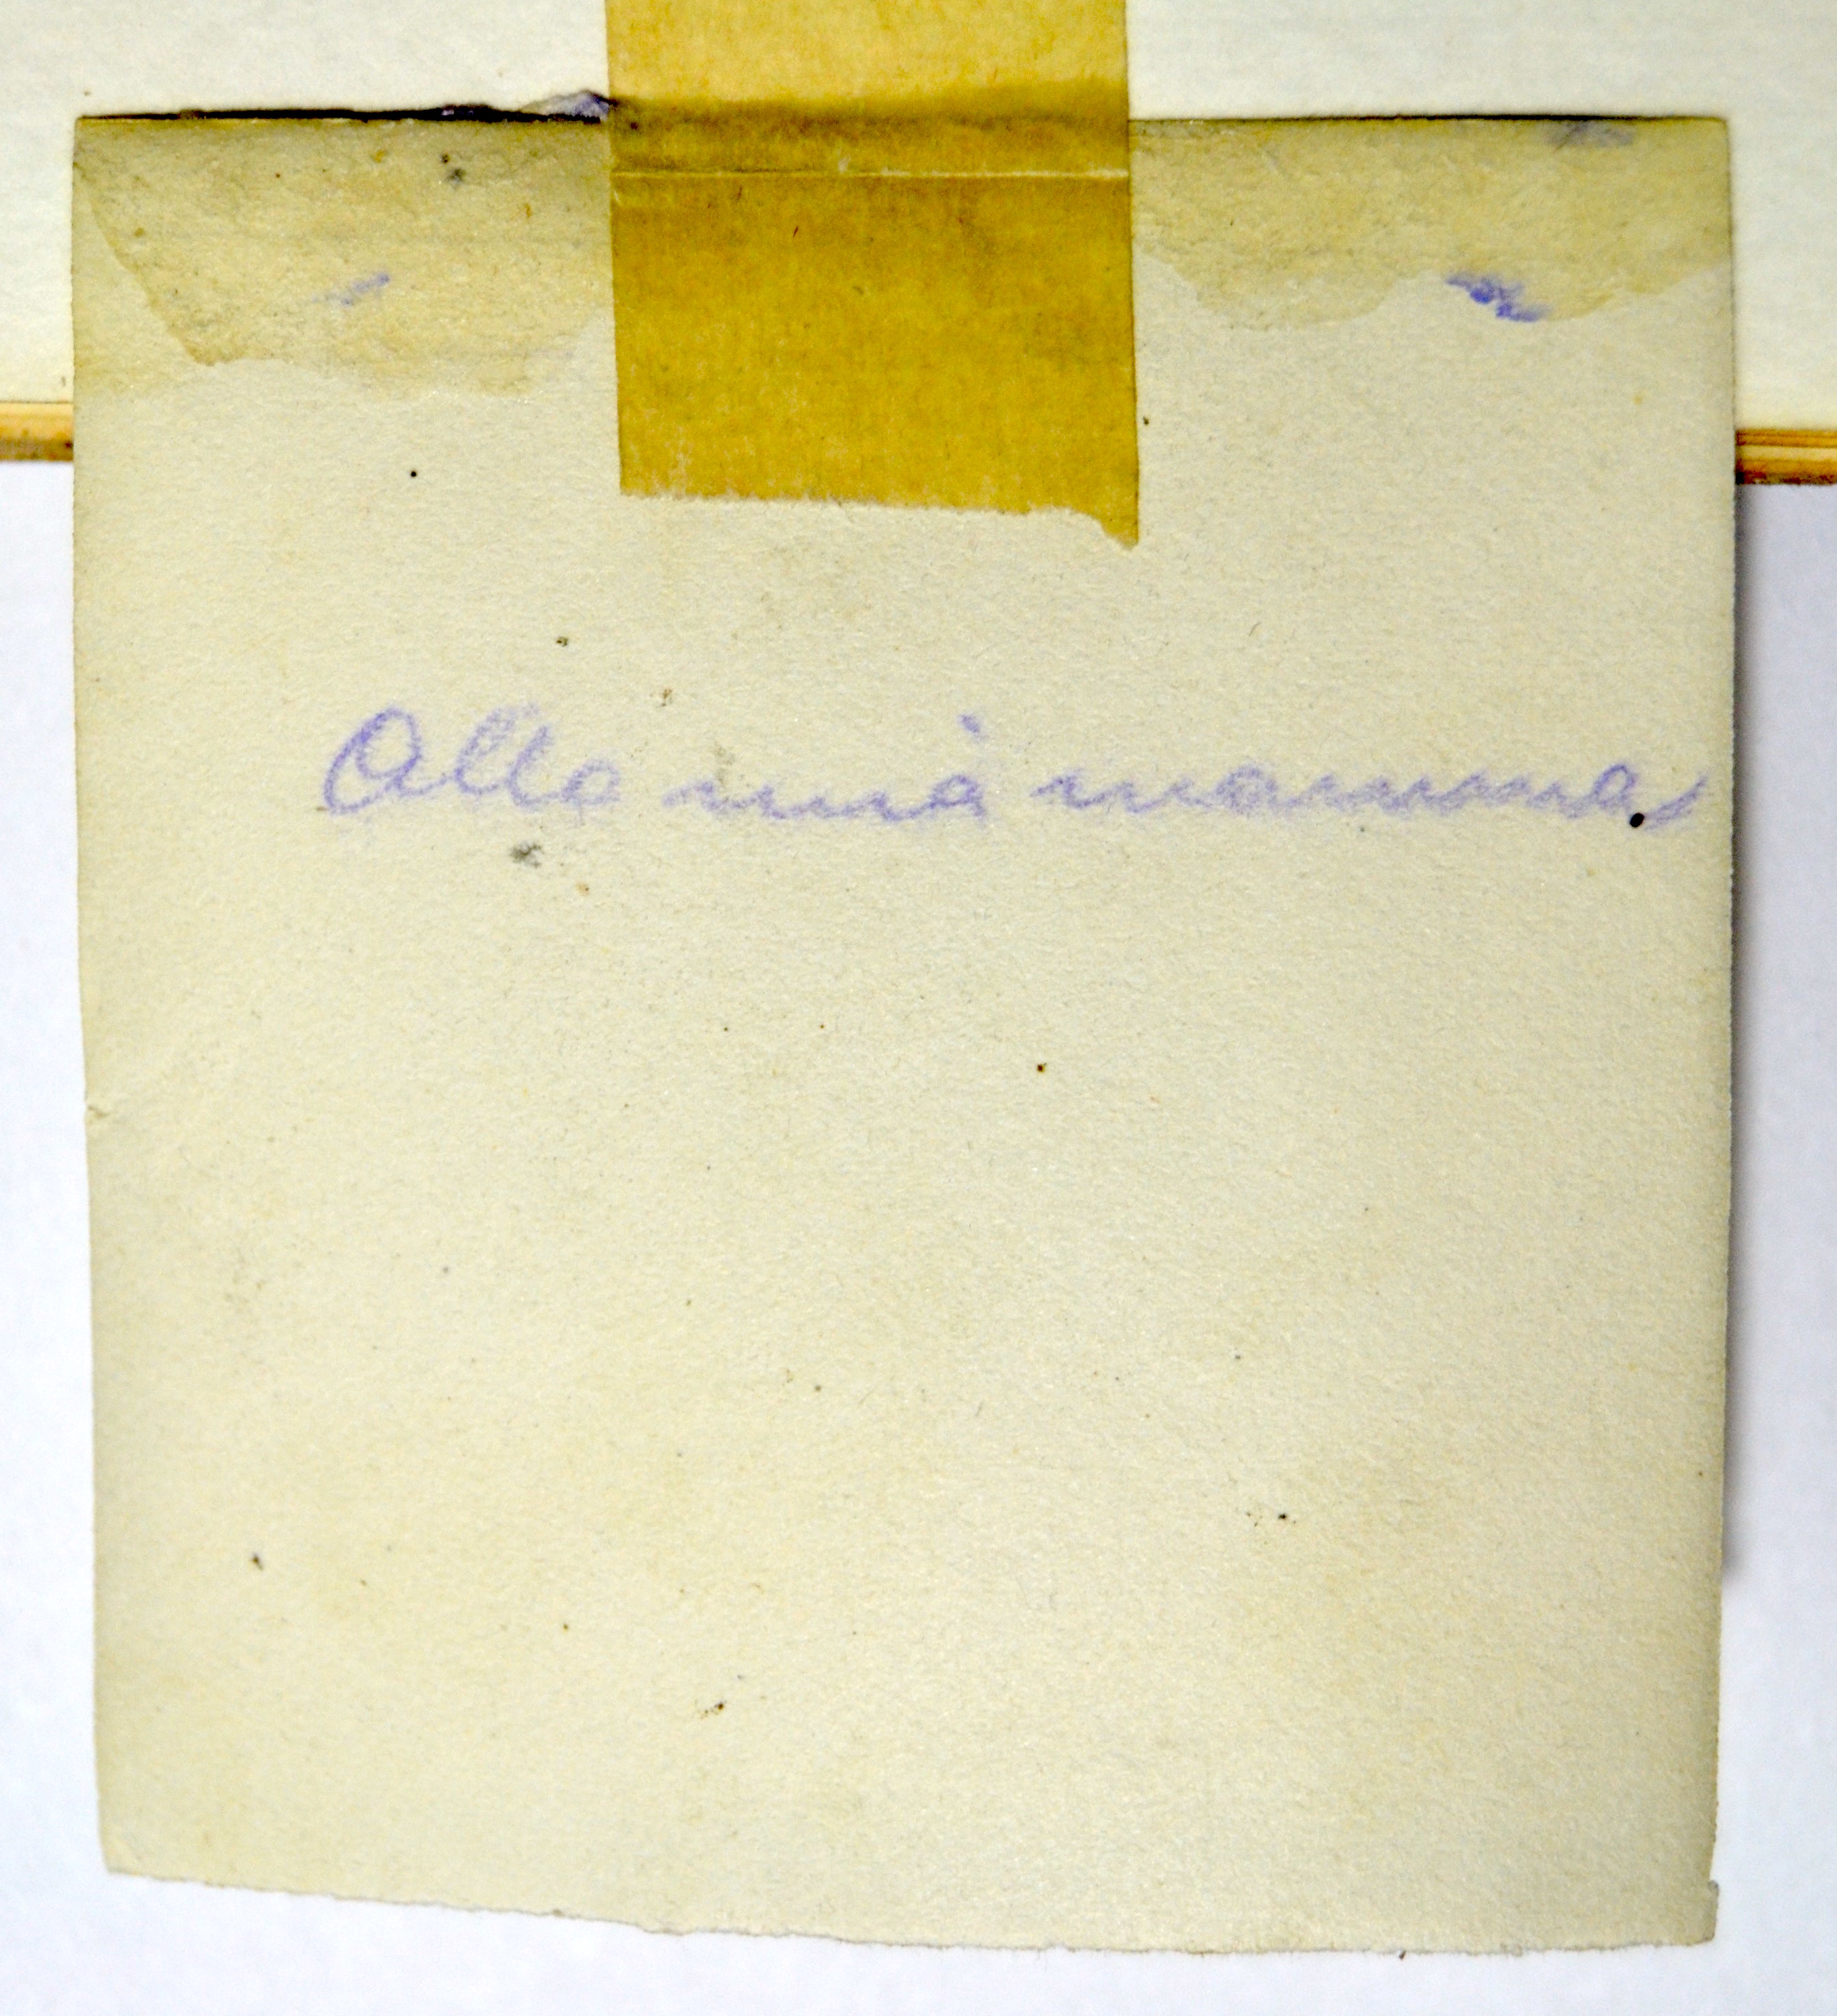 Alla mia mamma